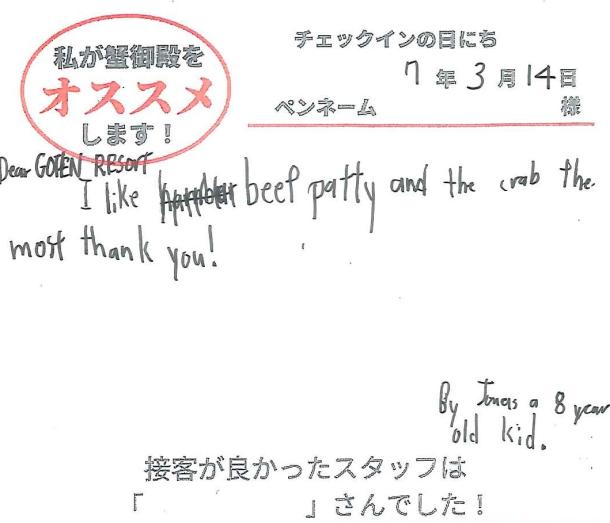 私が蟹御殿を
オススメ
します！
チェックインの日にち
7 年 3 月 14 日
ペンネーム 様
Dear GOTEN RESORT
I like beef patty and the crab the
most thank you!
By Jonas a 8 year
old kid.
接客が良かったスタッフは
「 」さんでした！